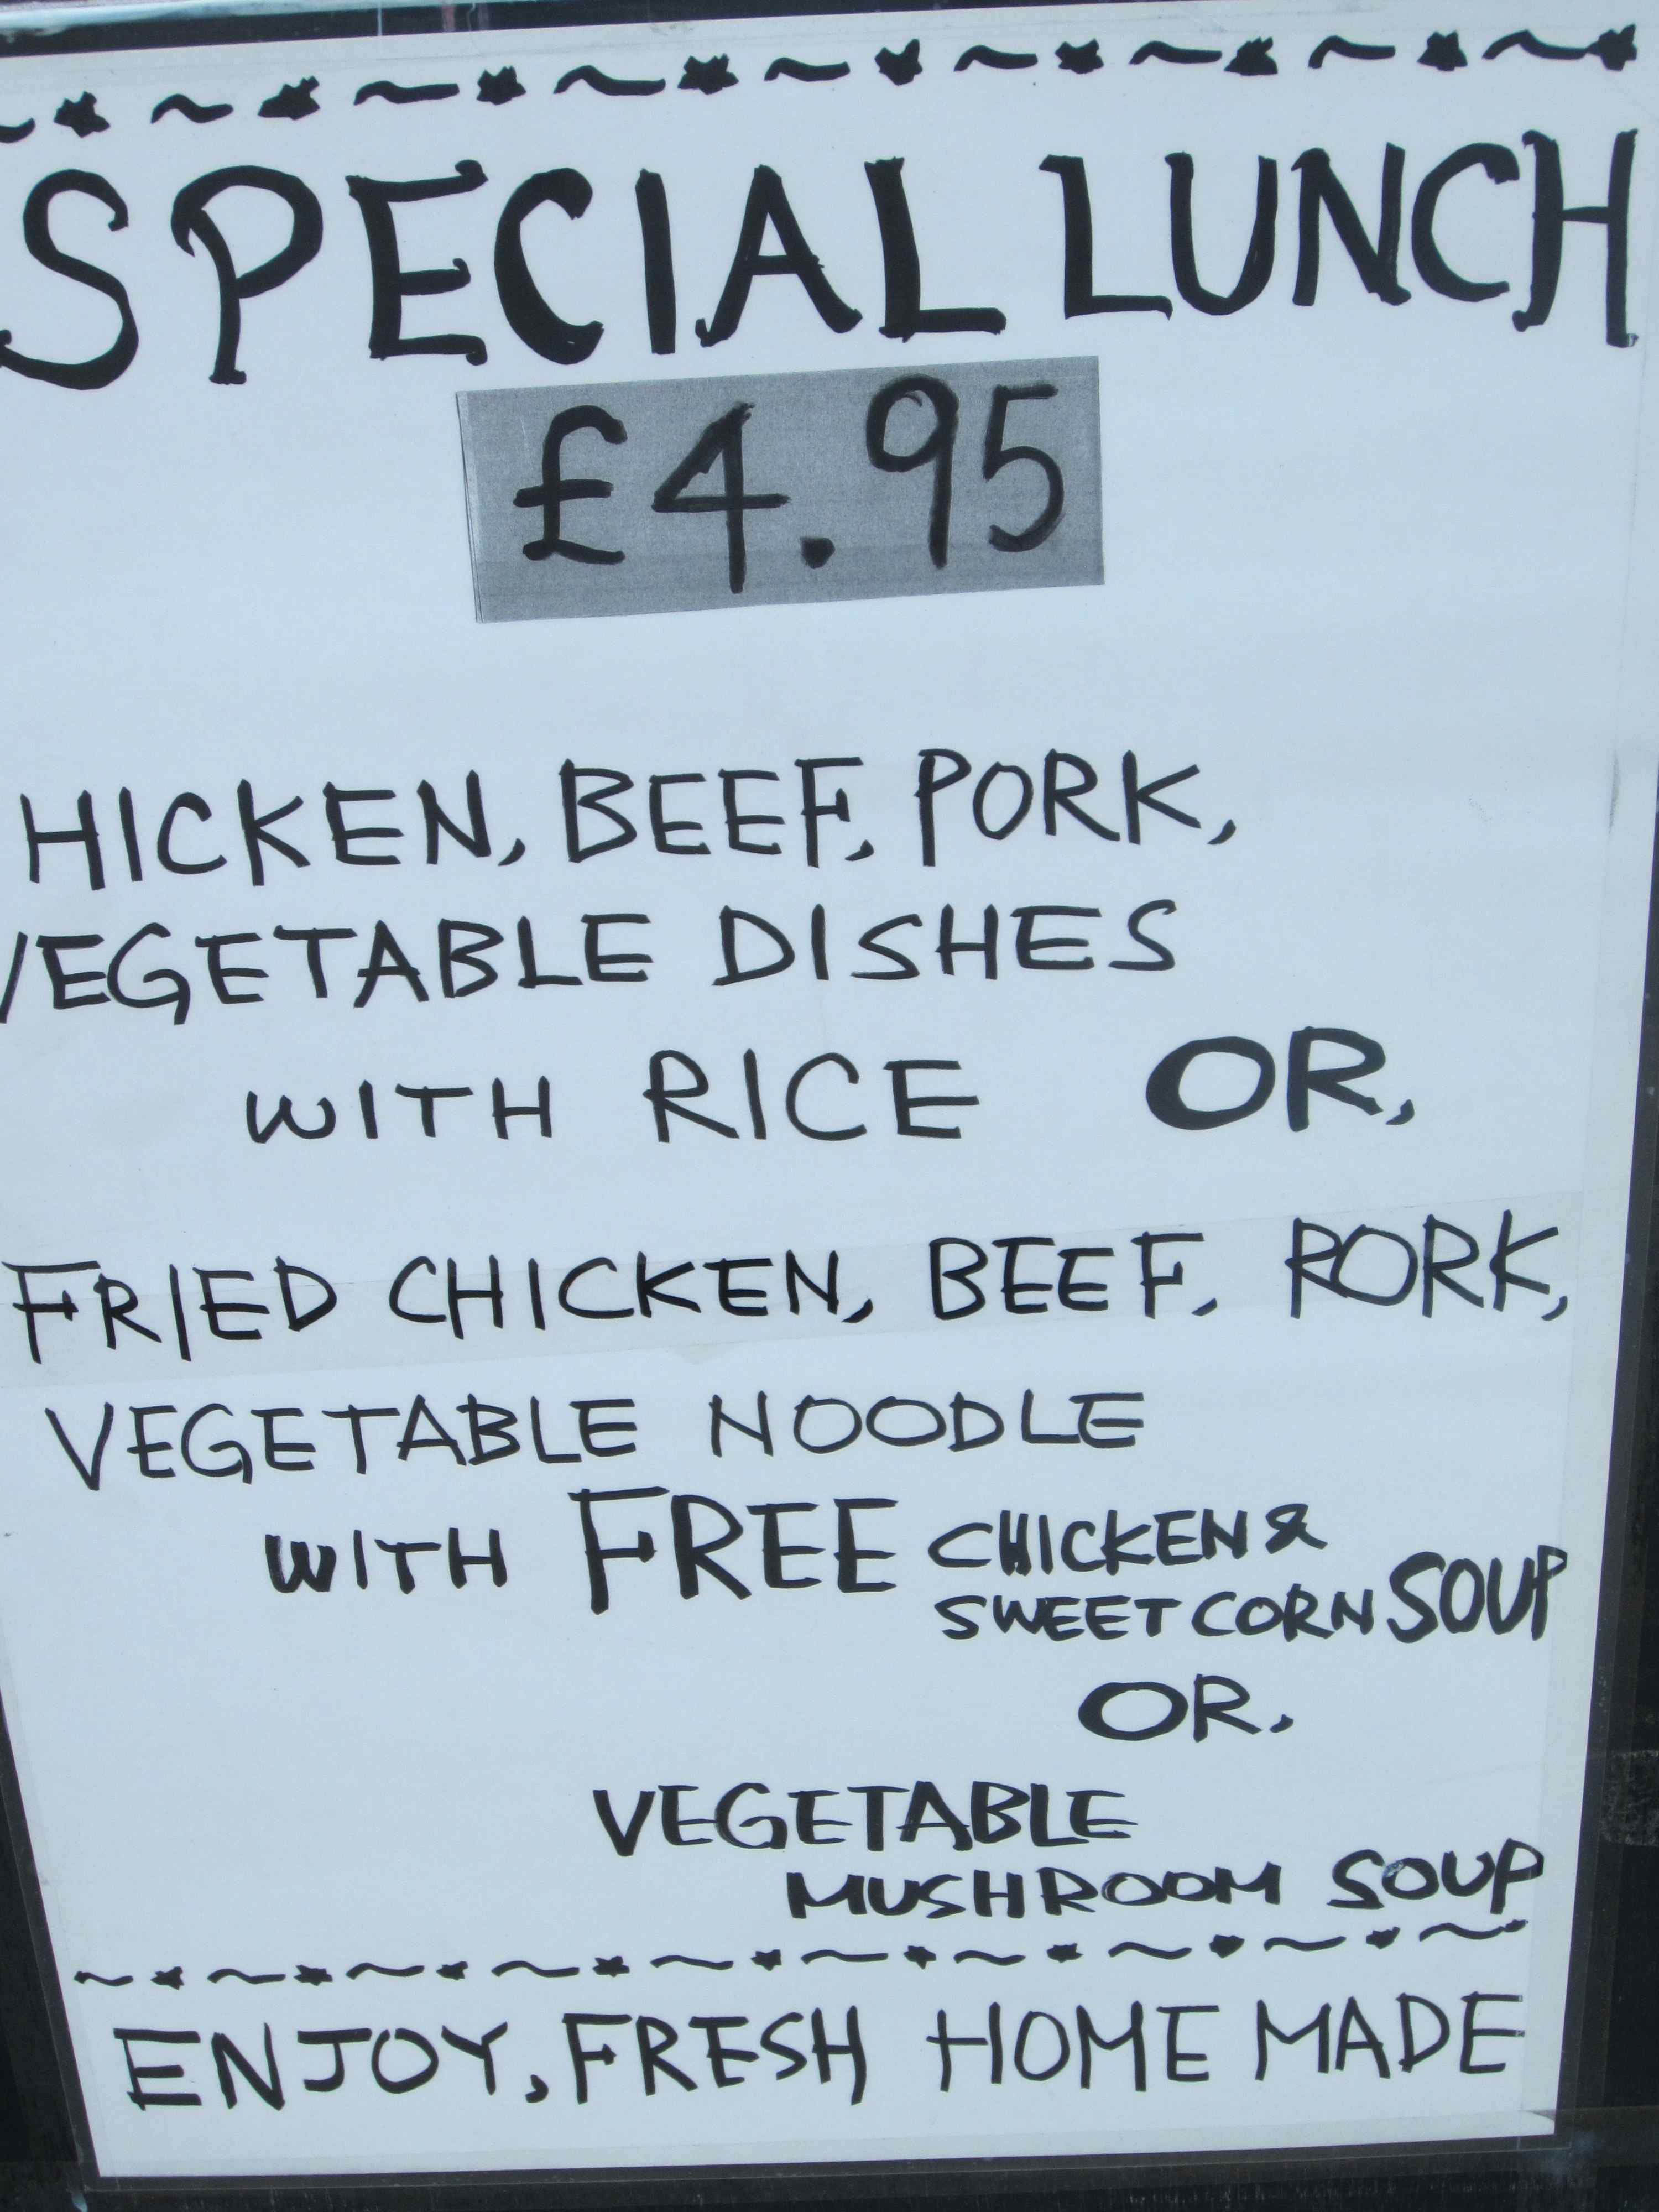 SPECIAL LUNCH
£4.95
HICKEN, BEEF, PORK,
VEGETABLE DISHES
WITH RICE OR,
FRIED CHICKEN, BEEF, PORK,
VEGETABLE NOODLE
WITH FREE CHICKEN &
SWEET CORN SOUP
OR,
VEGETABLE
MUSHROOM SOUP
ENJOY, FRESH HOME MADE